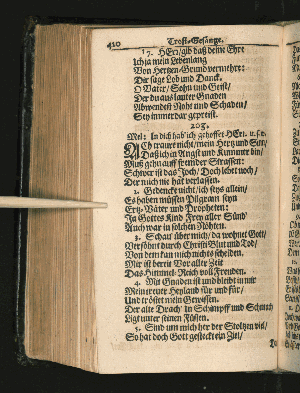 420
Trost-Gesänge.
17. HErr/ gib daß deine Ehre
Ich ja mein Lebenlang
Von Hertzen-Grund vermehre:
Dir sage Lob und Danck.
O Vater/ Sohn und Geist/
Der du aus lauter Gnaden
Abwendest Noht und Schaden/
Sey immerdar gepreist.
203.
Mel: In dich hab ich gehoffet HErr. u.s.w.
ACh traure nicht/ mein Hertz und Sinn/
Daß ich in Angst und Kummer bin/
Muß gehn auff frembder Strassen:
Schwer ist das Joch/ Doch lebet noch/
Der mich nie hat verlassen.
2. Gedencke nicht/ ich seys allein/
Es haben müssen Pilgram seyn
Ertz-Väter und Propheten:
Ja Gottes Kind Frey aller Sünd
Auch war in solchen Nöhten.
3. Schau über mich/ da wohnet Gott/
Versöhnt durch Christi Blut und Tod/
Von dem kan mich nichts scheiden.
Mir ist bereit Vor aller Zeit
Das Himmel-Reich voll Freuden.
4. Mit Gnaden ist und bleibt in mir
Mein treuer Heyland für und für/
Und tröstet mein Gewissen.
Der alte Drach/ In Schimpff und Schmach
Ligt unter seinen Füssen.
5. Sind um mich her der Stoltzen viel/
So hat doch Gott gesteckt ein Ziel/